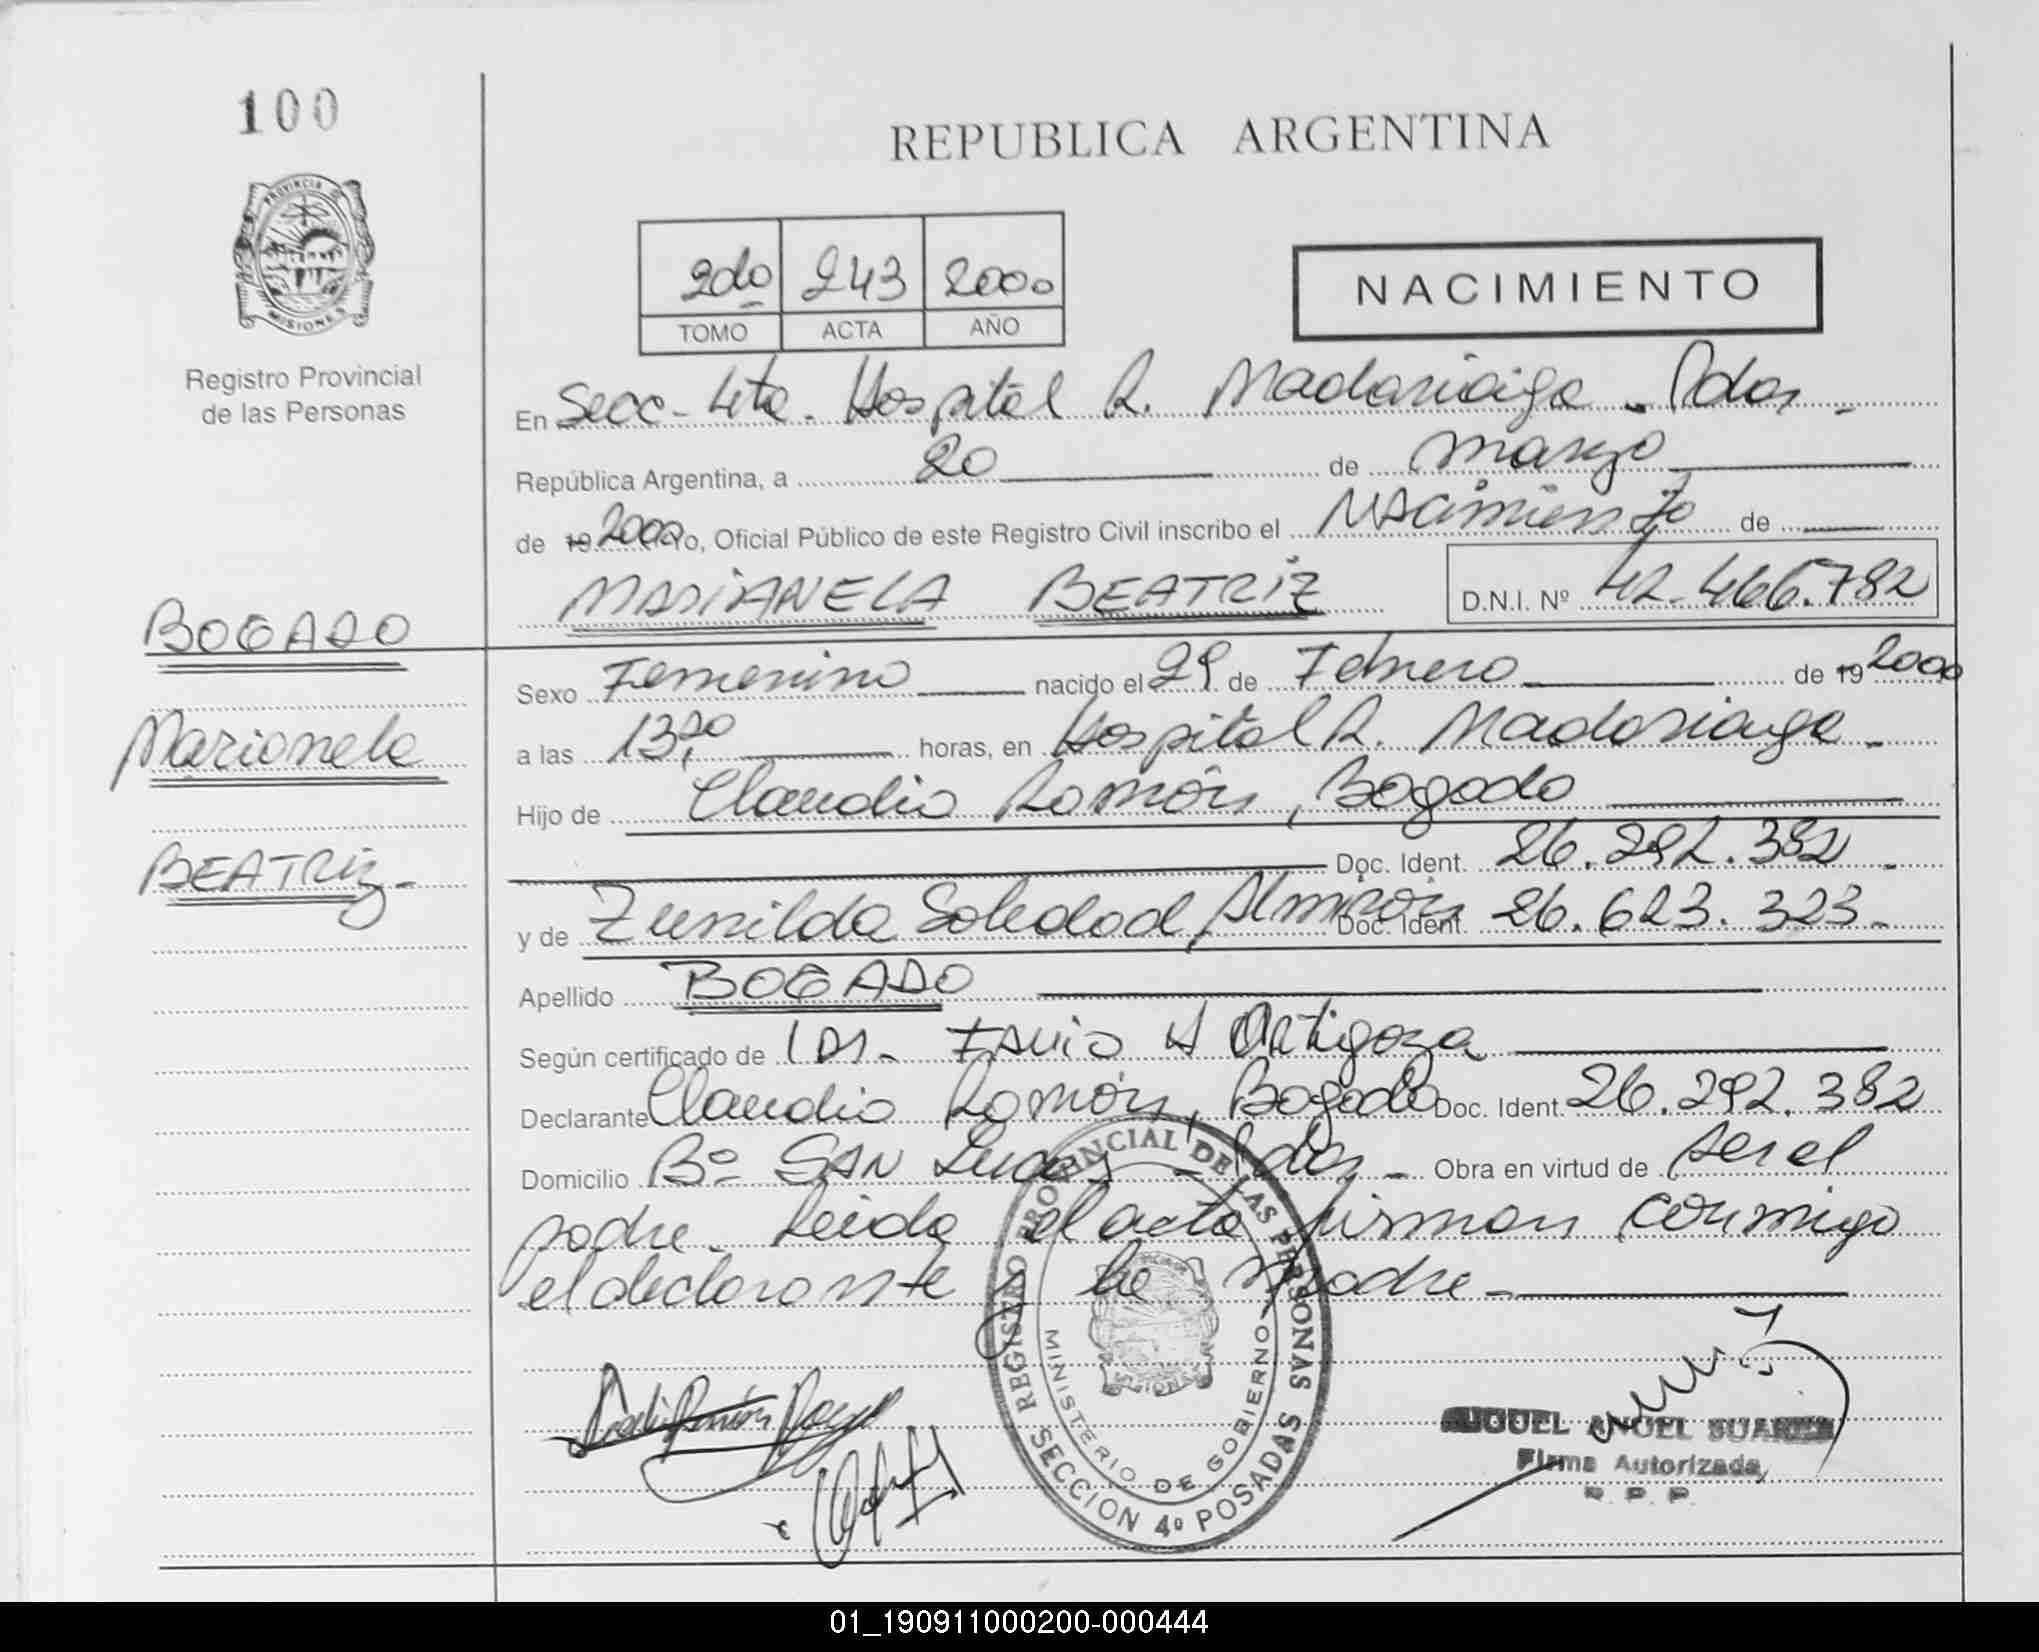 100
PROVINCIA DE
MISIONES
Registro Provincial
de las Personas
REPUBLICA ARGENTINA
2do 243 2000
TOMO ACTA AÑO
NACIMIENTO
En Secc- 4ta. Hospital R. Madariaga - Pdas -
República Argentina, a 20 de marzo
de 19 2000 Yo, Oficial Público de este Registro Civil inscribo el Nacimiento de
MARIANELA BEATRIZ D.N.I. Nº 42.466.782
BOGADO
Marianela
BEATRIZ-
Sexo Femenino nacido el 29 de Febrero de 19 2000
a las 13,20 horas, en Hospital R. Madariaga -
Hijo de Claudio Ramón, Bogado
Doc. Ident. 26.292.382 -
y de Zunilda Soledad, Almirón Doc. Ident. 26.623.323 -
Apellido BOGADO
Según certificado de Dr. A Ortigoza
Declarante Claudio Ramón, Bogado Doc. Ident. 26.292.382
Domicilio Bº SAN Lucas - Pdas - Obra en virtud de ser el
padre - Leida el acta firman conmigo
el declarante y la madre -
REGISTRO PROVINCIAL DE LAS PERSONAS
MINISTERIO DE GOBIERNO
SECCION 4º POSADAS
MISIONES
MIGUEL ANGEL SUAREZ
Firma Autorizada
R. P. P.
01_190911000200-000444